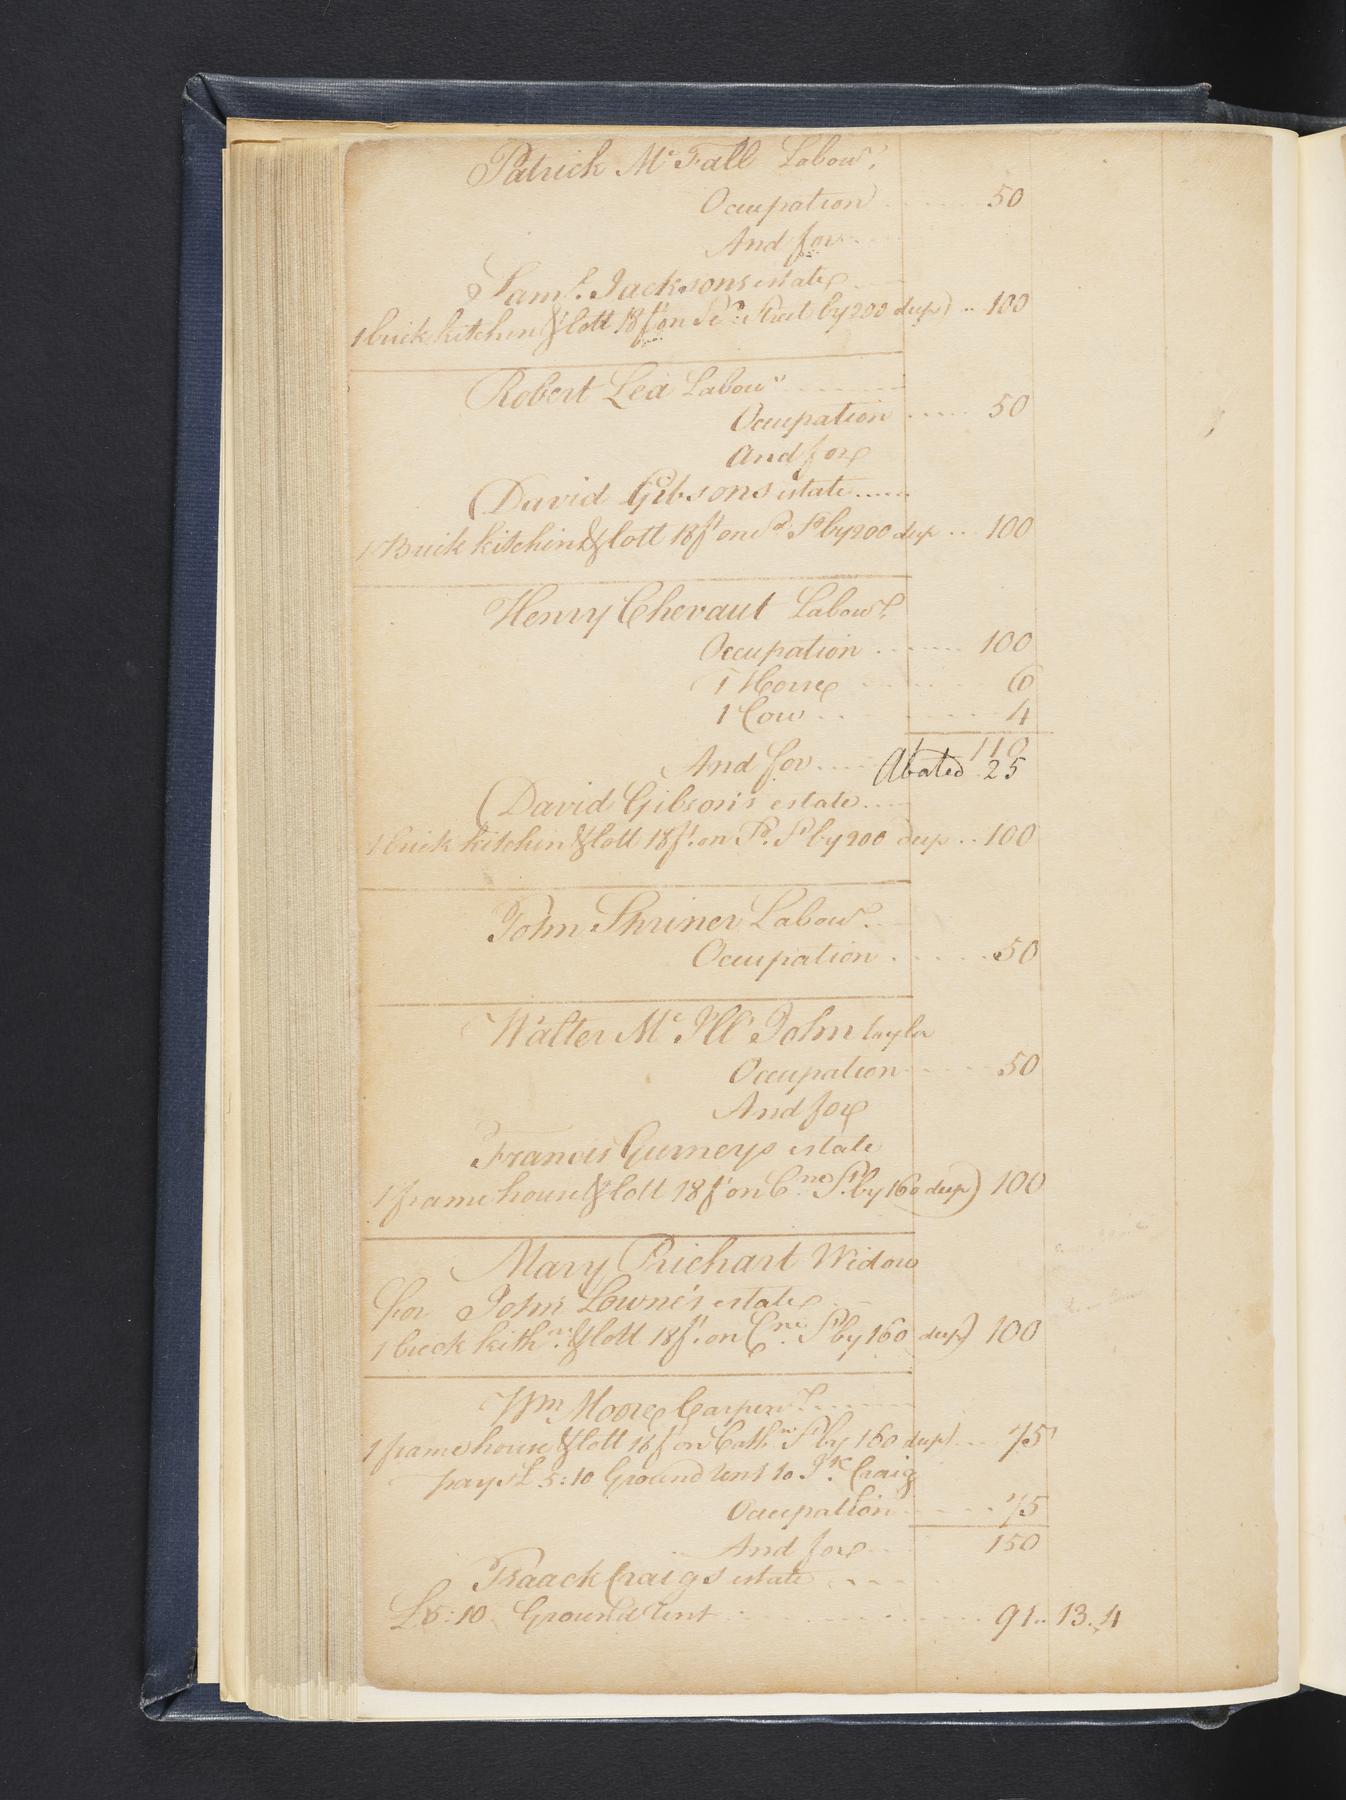 Patrick Mc Fall Labour
Ocupation ...... 50
And for
Saml. Jacksons estate
1 brick kitchin & lott 18 ft on Sd. Street by 200 deep) .. 100
Robert Lea Labour
Ocupation ..... 50
And for
David Gibsons estate ......
1 Brick kitchin & lott 18 ft on Sd. St by 200 deep .. 100
Henry Chevaut Labour
Occupation ....... 100
1 Horse 6
1 Cow 4
110
And for ..... Abated 25
David Gibson's estate ....
1 brick kitchin & lott 18 ft. on Sd. St by 200 deep .. 100
John Shriner Labour
Ocupation ...... 50
Walter Mc Ill John taylor
Occupation 50
And for
Francis Gurneys estate
1 frame house & lott 18 ft on Cne St. by 160 deep) 100
Mary Prichart Widow
for John Lowne's estate
1 brick kithn. & lott 18 ft. on Cne. St by 160 deep) 100
Wm Moore Carpenr.
1 frame house & lott 18 ft on Cathne St by 160 deep) ... 75
pays £ 5:10 Ground rent to Isc. Craig
Ocupation 75
And for 150
Isaack Craigs estate
£ 5:10 Ground rent 91 .. 13 . 4